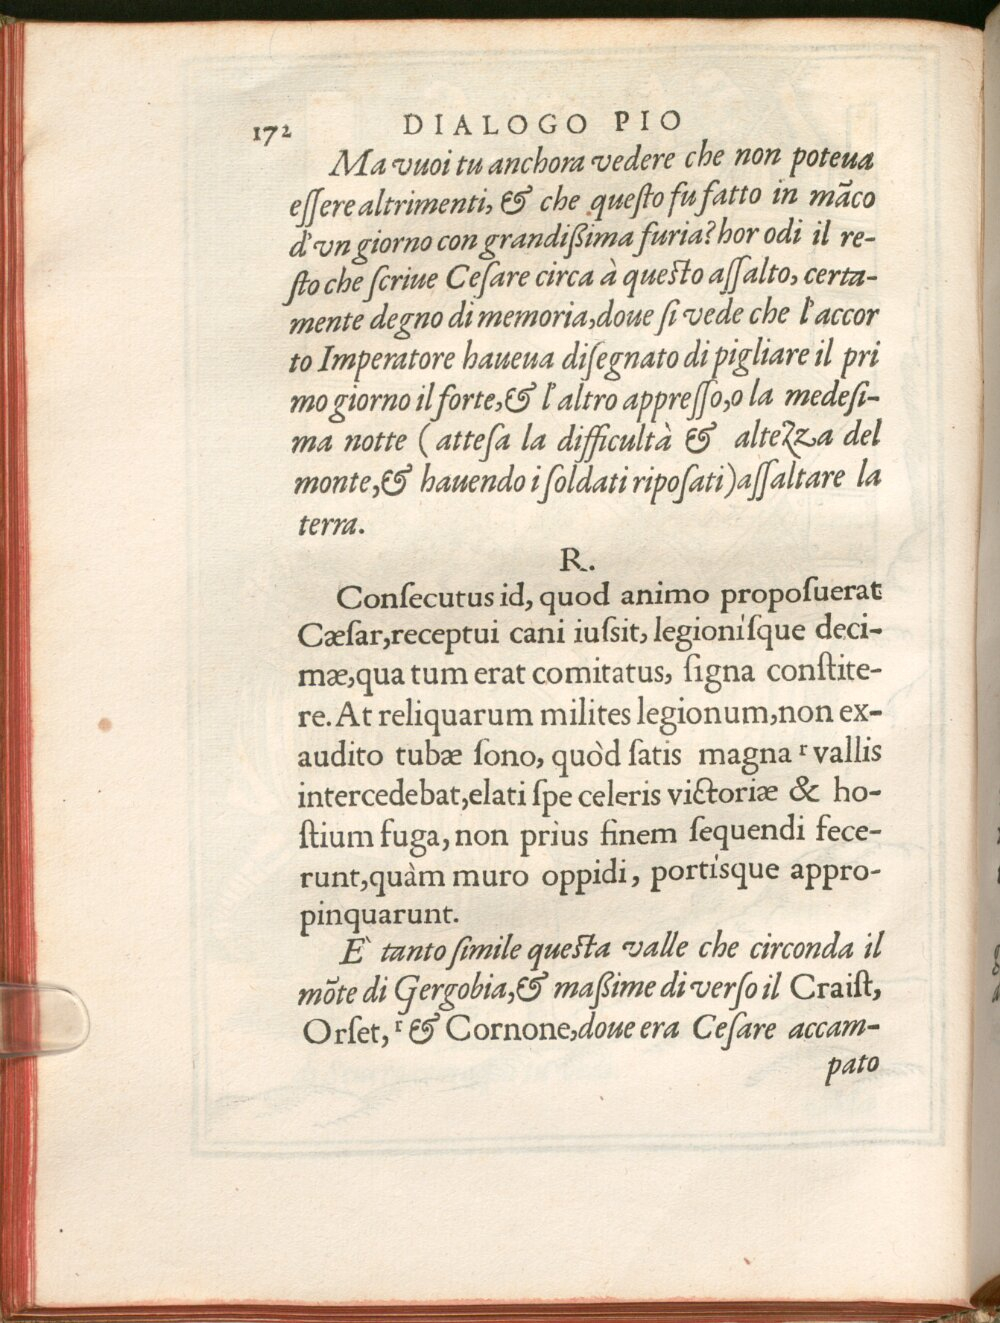 172 DIALOGO PIO
Ma vuoi tu anchora vedere che non poteua
eſſere altrimenti, & che queſto fu fatto in mãco
d'vn giorno con grandiſsima furia? hor odi il re-
ſto che ſcriue Ceſare circa à queſto aſſalto, certa-
mente degno di memoria, doue ſi vede che l'accor
to Imperatore haueua diſegnato di pigliare il pri
mo giorno il forte, & l'altro appreſſo, o la medeſi-
ma notte (atteſa la difficultà & altezza del
monte, & hauendo i ſoldati ripoſati) aſſaltare la
terra.
R.
Conſecutus id, quod animo propoſuerat
Cæſar, receptui cani iuſsit, legioniſque deci-
mæ, qua tum erat comitatus, ſigna conſtite-
re. At reliquarum milites legionum, non ex-
audito tubæ ſono, quòd ſatis magna r vallis
intercedebat, elati ſpe celeris victoriæ & ho-
ſtium fuga, non priùs finem ſequendi fece-
runt, quàm muro oppidi, portiſque appro-
pinquarunt.
E' tanto ſimile queſta valle che circonda il
mõte di Gergobia, & maſsime di verſo il Craiſt,
Orſet, r & Cornone, doue era Ceſare accam-
pato